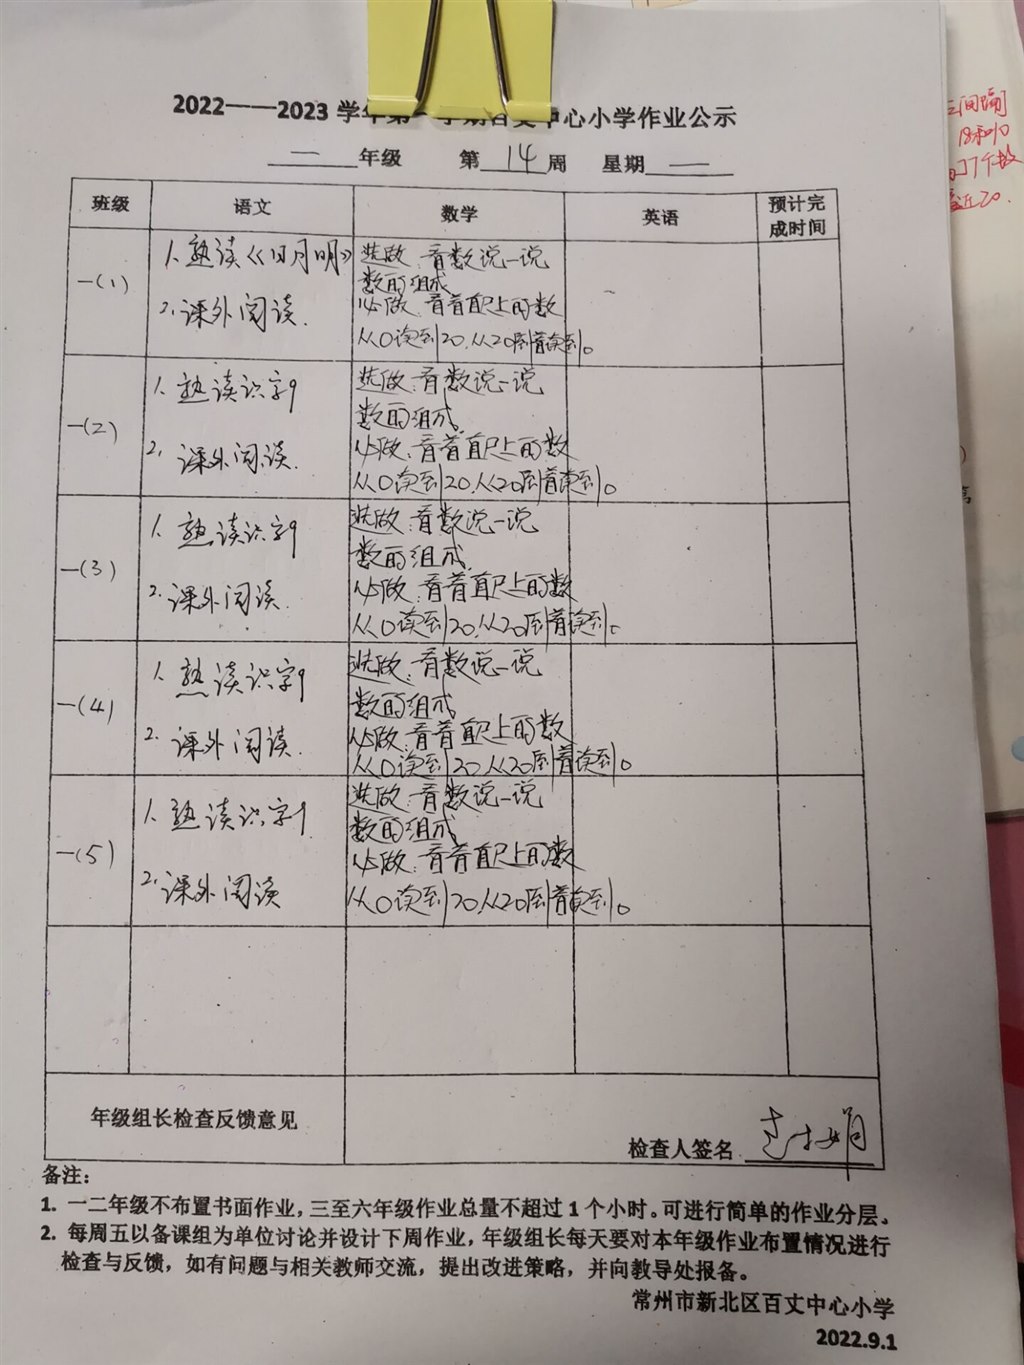 2022——2023学年第一学期百丈中心小学作业公示
一 年级 第 14 周 星期 一
班级 语文 数学 英语 预计完成时间
一(1)
1. 熟读《日月明》
2. 课外阅读.
选做:看数说一说
数的组成
必做:看着直尺上的数
从0读到20,从20倒着读到0
一(2)
1. 熟读识字9
2. 课外阅读.
选做:看数说一说
数的组成
必做:看着直尺上的数
从0读到20,从20倒着读到0
一(3)
1. 熟读识字9
2. 课外阅读.
选做:看数说一说
数的组成
必做:看着直尺上的数
从0读到20,从20倒着读到0
一(4)
1. 熟读识字9
2. 课外阅读.
选做:看数说一说
数的组成
必做:看着直尺上的数
从0读到20,从20倒着读到0
一(5)
1. 熟读识字9
2. 课外阅读
选做:看数说一说
数的组成
必做:看着直尺上的数
从0读到20,从20倒着读到0
年级组长检查反馈意见
检查人签名
备注:
1. 一二年级不布置书面作业,三至六年级作业总量不超过1个小时。可进行简单的作业分层。
2. 每周五以备课组为单位讨论并设计下周作业,年级组长每天要对本年级作业布置情况进行
检查与反馈,如有问题与相关教师交流,提出改进策略,并向教导处报备。
常州市新北区百丈中心小学
2022.9.1